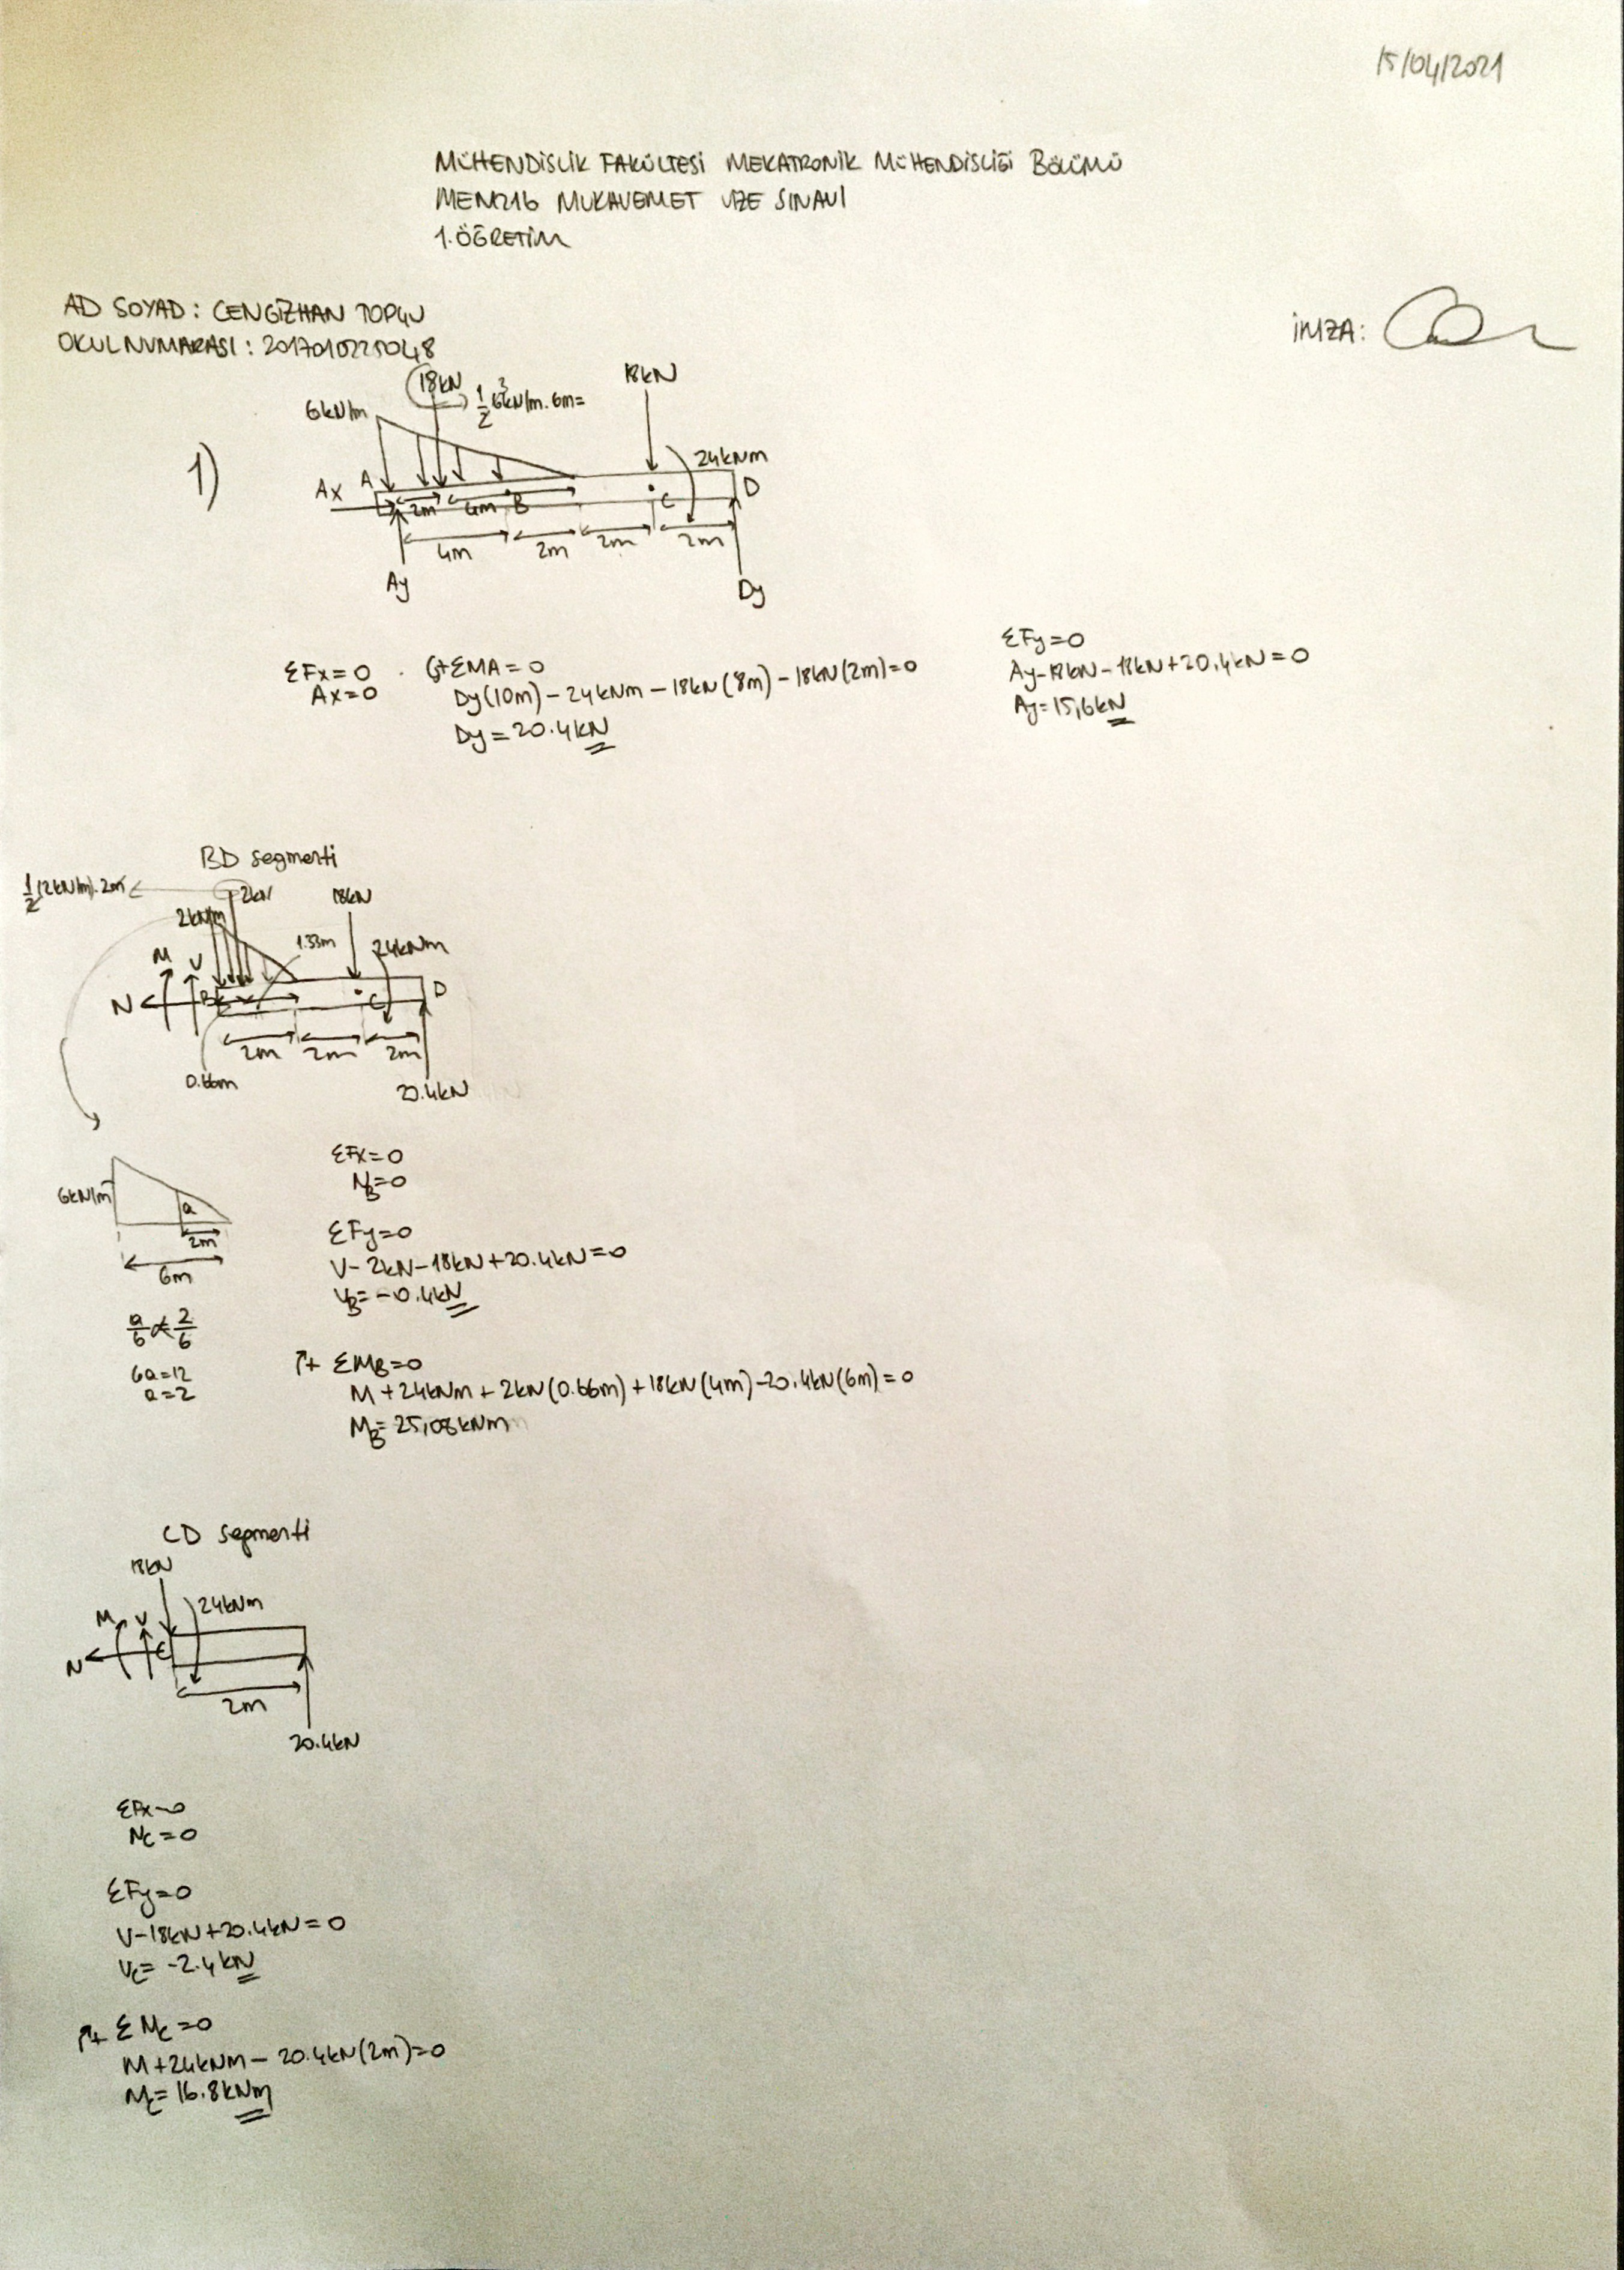 15/04/2021
MÜHENDİSLİK FAKÜLTESİ MEKATRONİK MÜHENDİSLİĞİ BÖLÜMÜ
MEM216 MUKAVEMET VİZE SINAVI
1.ÖĞRETİM
AD SOYAD: CENGİZHAN TOPÇU
OKUL NUMARASI:
İMZA:
1)
6kN/m
18kN
1/2 6kN/m.6m=
3
18kN
24kNm
Ax
A
2m
4m
B
C
D
4m
2m
2m
2m
Ay
Dy
ΣFx=0
Ax=0
+ΣMA=0
Dy(10m)-24kNm-18kN(8m)-18kN(2m)=0
Dy=20.4kN
ΣFy=0
Ay-18kN-18kN+20,4kN=0
Ay=15,6kN
BD segmenti
1/2(2kN/m).2m
2kN
18kN
2kN/m
1.33m
24kNm
M
V
N
B
C
D
2m
2m
2m
0.66m
20.4kN
6kN/m
a
2m
6m
a/6 2/6
6a=12
a=2
ΣFx=0
NB=0
ΣFy=0
V-2kN-18kN+20.4kN=0
VB=-0.4kN
+ ΣMB=0
M+24kNm+2kN(0.66m)+18kN(4m)-20.4kN(6m)=0
MB=25,08kNm
CD segmenti
18kN
24kNm
M
V
N
C
2m
20.4kN
ΣFx=0
NC=0
ΣFy=0
V-18kN+20.4kN=0
VC=-2.4kN
+ ΣMC=0
M+24kNm-20.4kN(2m)=0
MC=16.8kNm